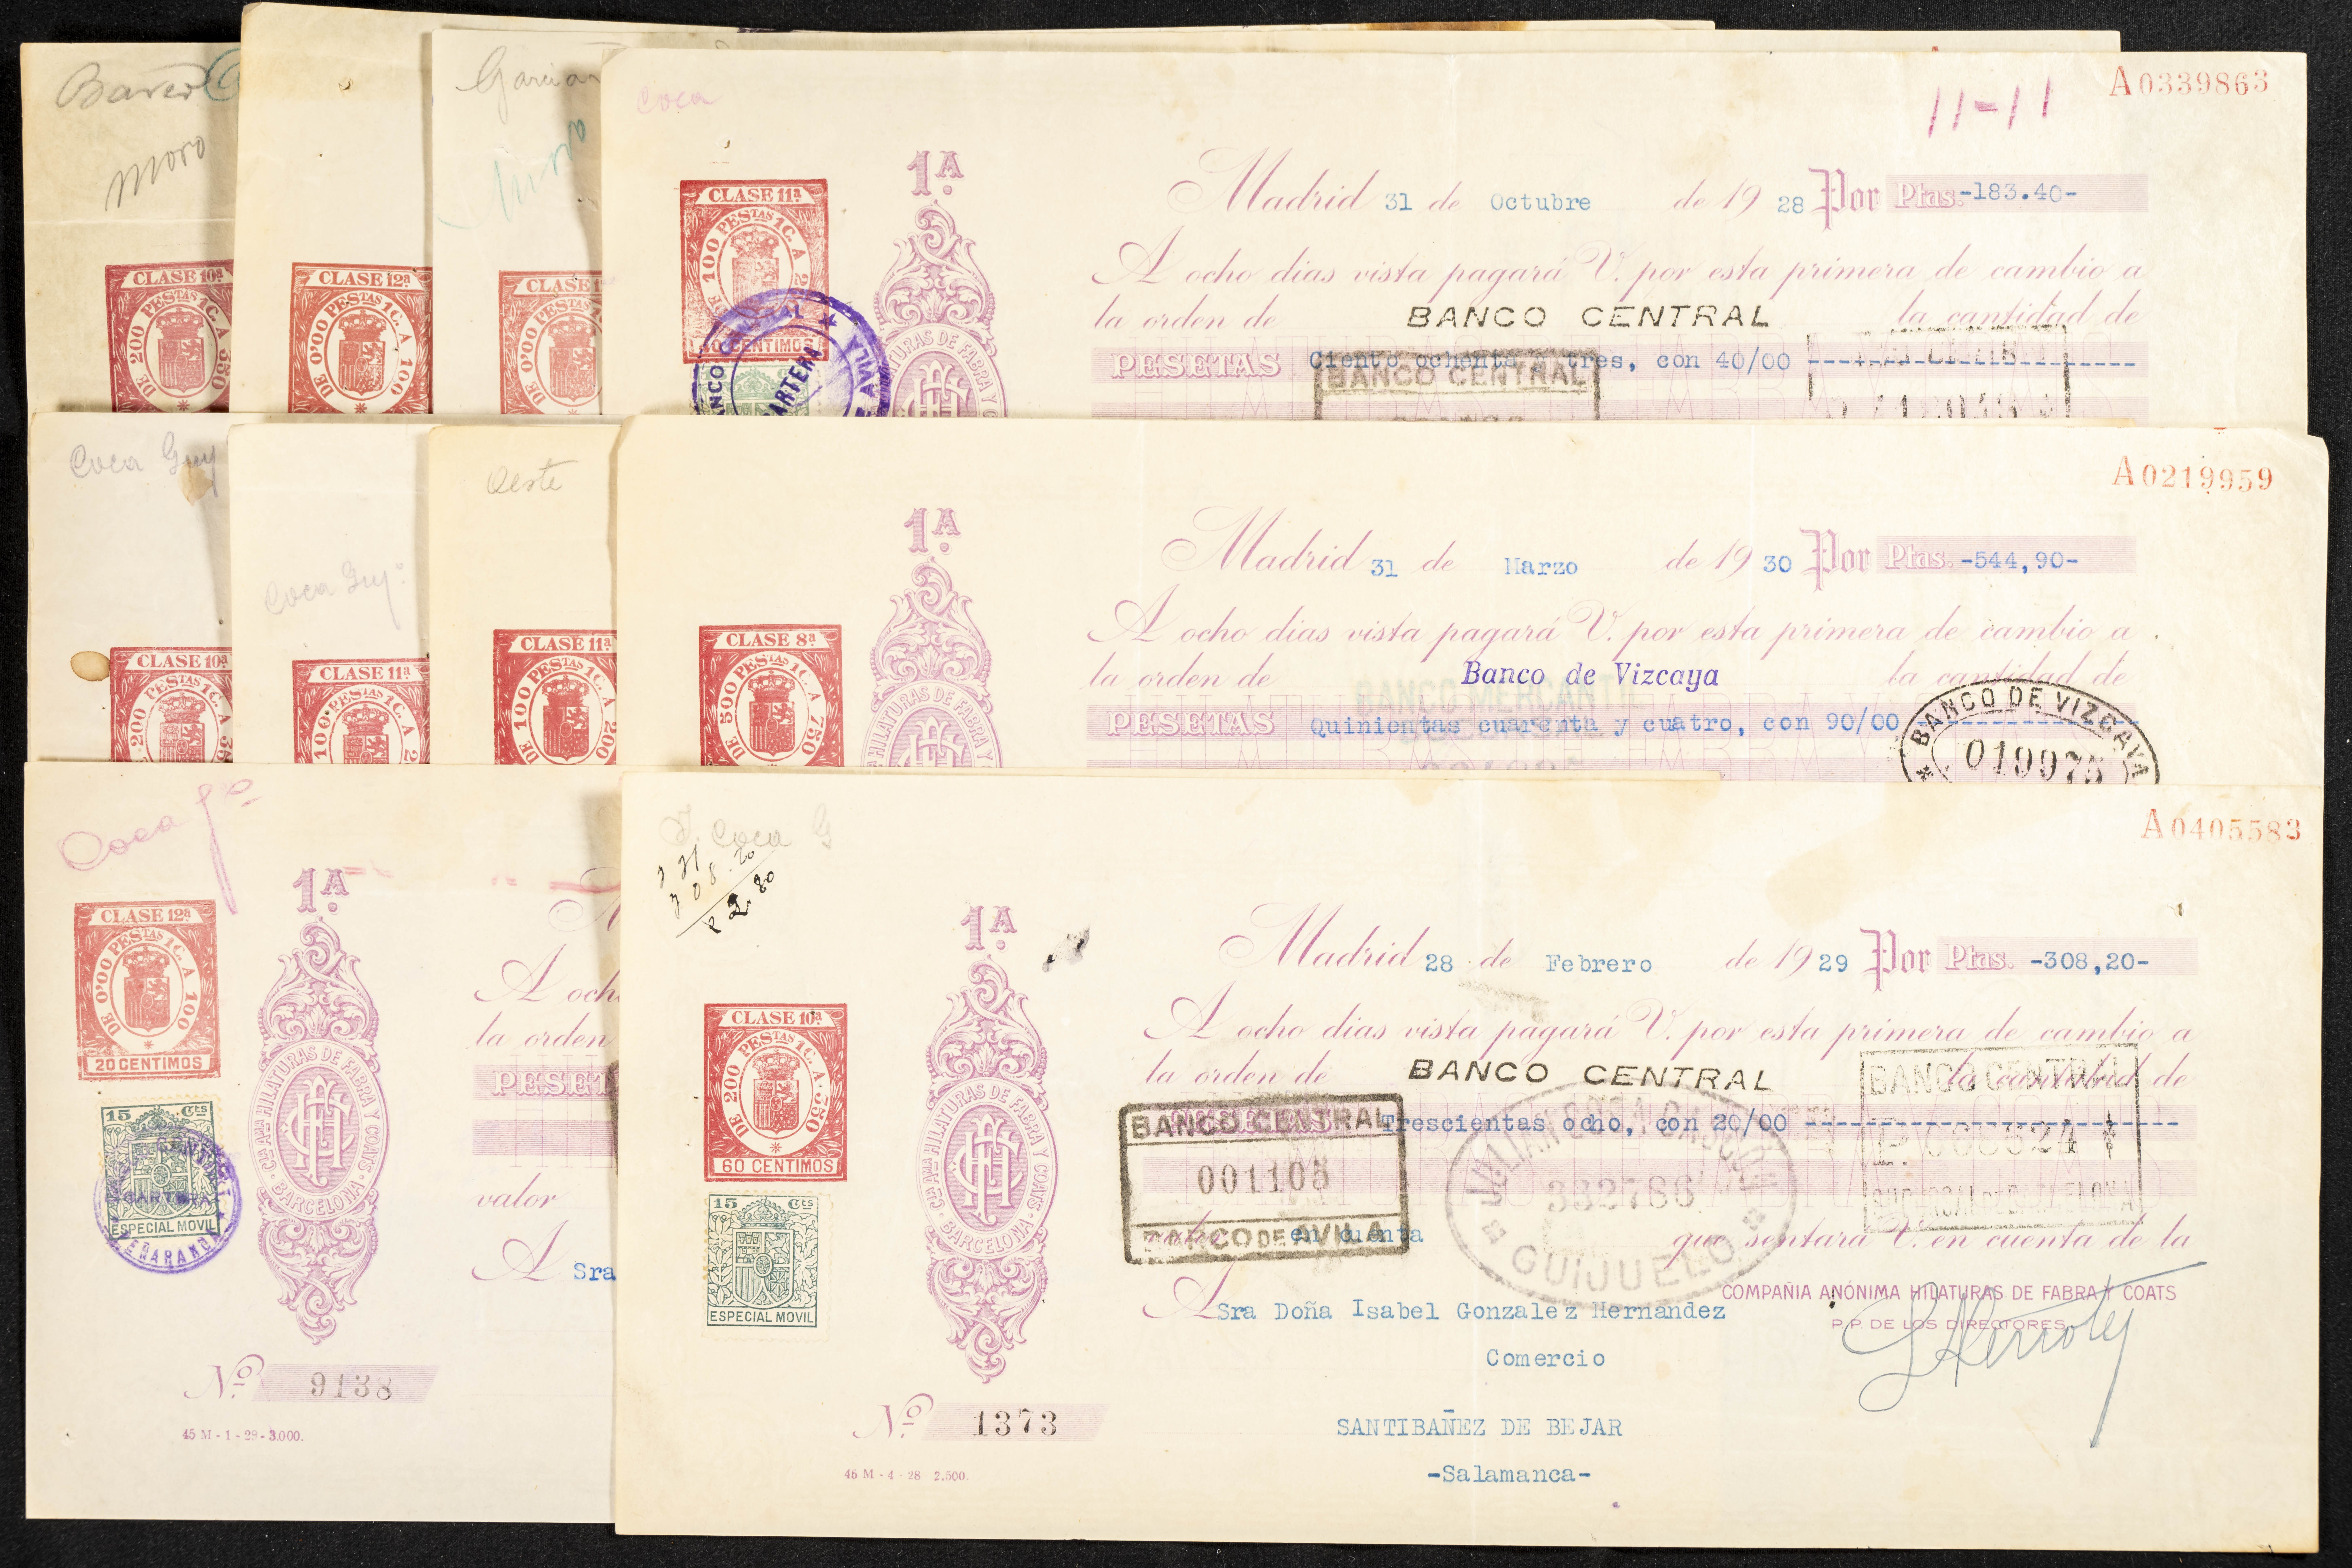 Moro
CLASE 10ª
DE 200 PESTAS 1C. A 350
CLASE 12ª
DE 0'00 PESTAS 1C. A 100
CLASE
DE 0'00 PESTAS 1C. A
Coca
A0339863
11-11
1ª
CLASE 11ª
DE 100 PESTAS 1C. A
CENTIMOS
Madrid 31 de Octubre de 1928 Por Ptas.-183.40-
A ocho dias vista pagará V. por esta primera de cambio a
la orden de BANCO CENTRAL la cantidad de
PESETAS Ciento ochenta y tres, con 40/00
BANCO CENTRAL
Coca Guy
CLASE 10ª
DE 200 PESTAS 1C. A
Coca Guyº
CLASE 11ª
100 PESTAS 1C. A
Oeste
CLASE 11ª
DE 100 PESTAS 1C. A 200
A0219959
1ª
CLASE 8ª
DE 500 PESTAS 1C. A 750
HILATURAS DE FABRA Y
Madrid 31 de Marzo de 1930 Por Ptas. -544,90-
A ocho dias vista pagará V. por esta primera de cambio a
la orden de Banco de Vizcaya la cantidad de
BANCO MERCANTIL
PESETAS Quinientas cuarenta y cuatro, con 90/00
BANCO DE VIZCAYA
019975
Coca
1ª
CLASE 12ª
DE 0'00 PESTAS 1C. A 100
20 CENTIMOS
15 Cts
ESPECIAL MOVIL
CARTERA
CIA ANMA HILATURAS DE FABRA Y COATS · BARCELONA
A ocho
la orden
PESET
valor
A Sra
Nº 9138
45 M - 1 - 29 - 3.000.
Coca G
308.20
A0405583
1ª
CLASE 10ª
DE 200 PESTAS 1C. A 350
60 CENTIMOS
15 Cts
ESPECIAL MOVIL
CIA ANMA HILATURAS DE FABRA Y COATS · BARCELONA
Madrid 28 de Febrero de 1929 Por Ptas. -308,20-
A ocho dias vista pagará V. por esta primera de cambio a
la orden de BANCO CENTRAL la cantidad de
Trescientas ocho, con 20/00
BANCO CENTRAL
001105
BANCO DE AVILA
BANCO CENTRAL
332786
GUIJUELO
en cuenta que sentará V. en cuenta de la
COMPAÑIA ANÓNIMA HILATURAS DE FABRA Y COATS
P.P. DE LOS DIRECTORES
A Sra Doña Isabel Gonzalez Hernandez
Comercio
SANTIBAÑEZ DE BEJAR
-Salamanca-
Nº 1373
45 M - 4 - 28 2.500.